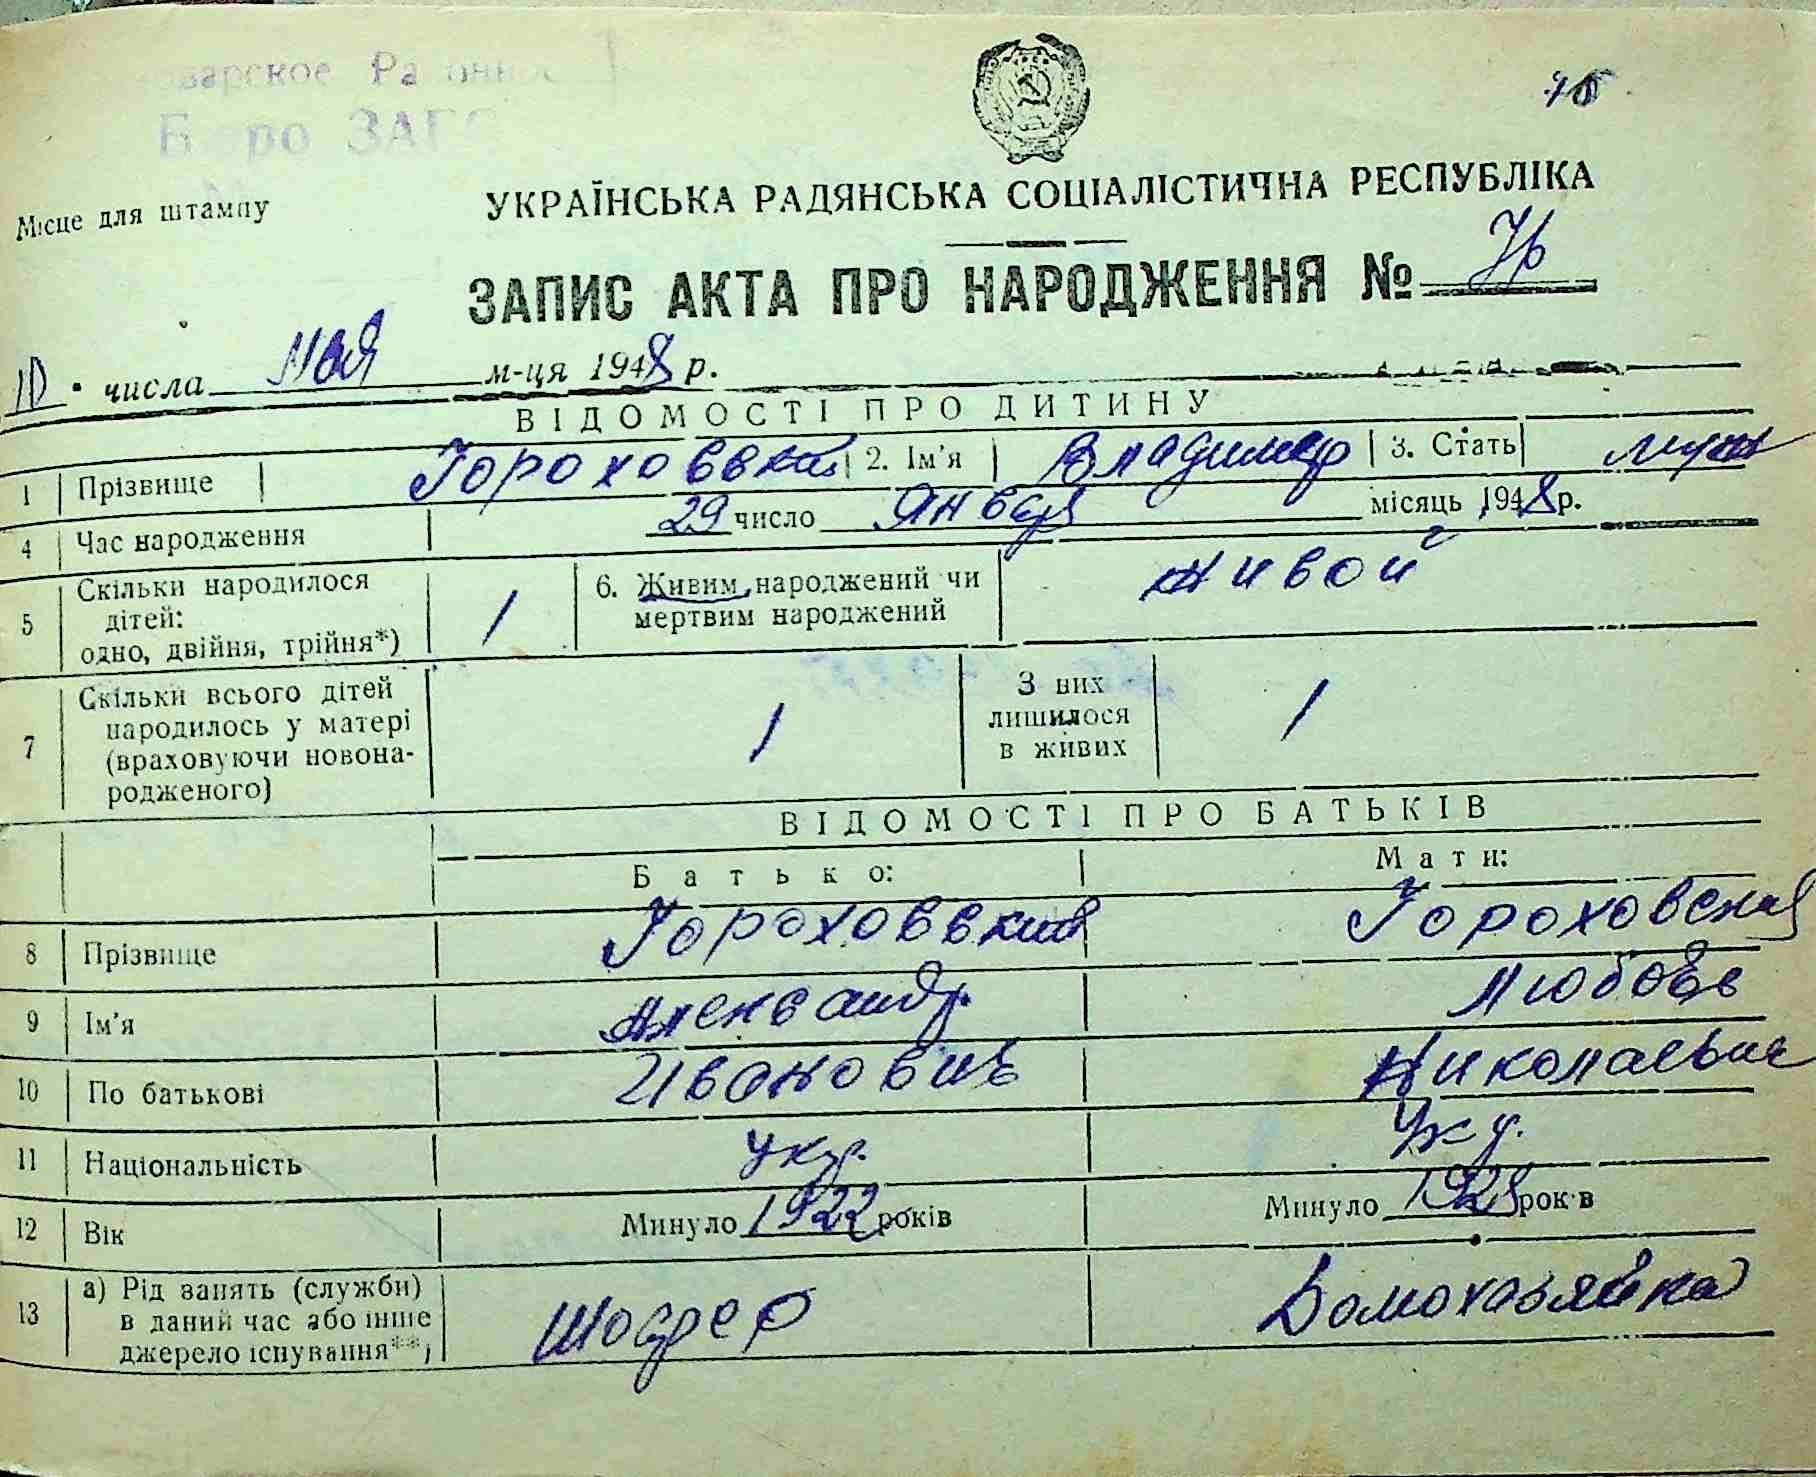 Бюро ЗАГС
Місце для штампу
УКРАЇНСЬКА РАДЯНСЬКА СОЦІАЛІСТИЧНА РЕСПУБЛІКА
ЗАПИС АКТА ПРО НАРОДЖЕННЯ №
10 числа мая м-ця 1948 р.
ВІДОМОСТІ ПРО ДИТИНУ
1 Прізвище Гороховский 2. Ім'я Владимир 3. Стать муж
4 Час народження 29 число Января місяць 1948 р.
5 Скільки народилося дітей: одно, двійня, трійня*) 1 6. Живим народжений чи мертвим народжений живой
7 Скільки всього дітей народилось у матері (враховуючи новонародженого) 1 З них лишилося в живих 1
ВІДОМОСТІ ПРО БАТЬКІВ
Батько: Мати:
8 Прізвище Гороховский Гороховская
9 Ім'я Александр Любовь
10 По батькові Иванович Николаевна
11 Національність укр. Укр.
12 Вік Минуло 1922 років Минуло 1928 років
13 а) Рід занять (служби) в даний час або інше джерело існування**) Шофер Домохозяйка